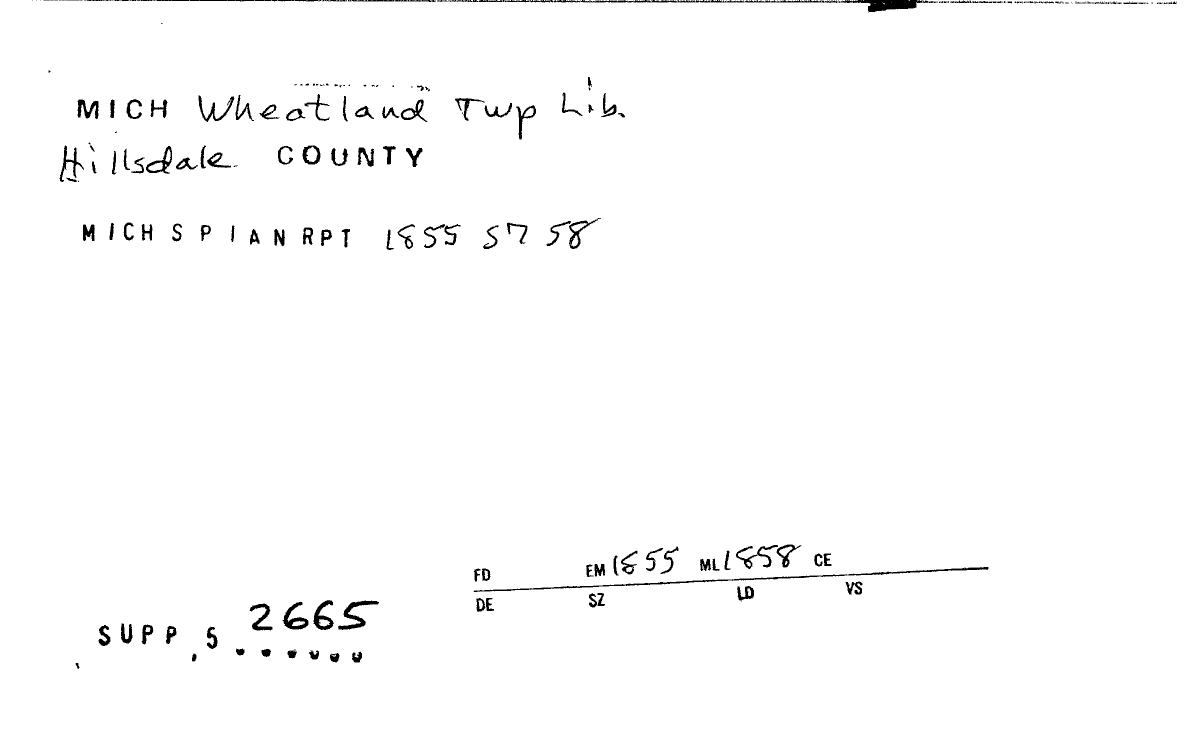 MICH Wheatland Twp Lib.
Hillsdale COUNTY
MICH S P I A N RPT 1855 57 58
FD EM 1855 ML 1858 CE
DE SZ LD VS
SUPP, 5 2665